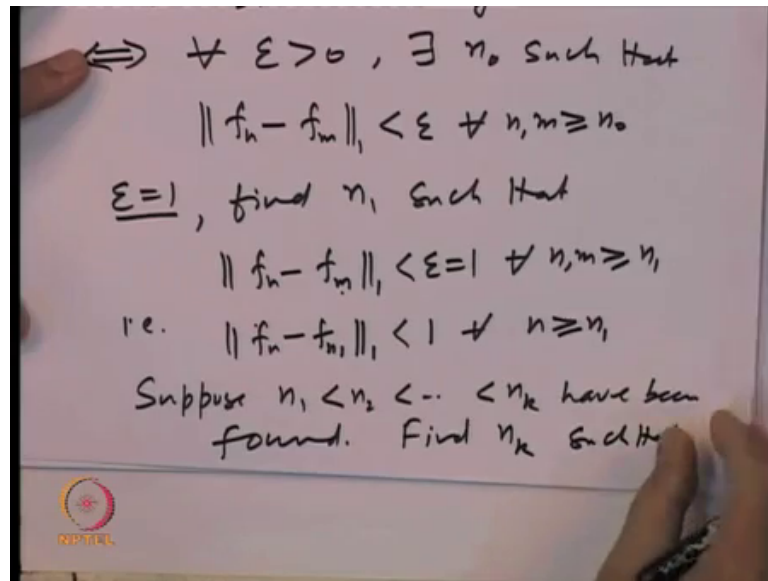 ⟺ ∀ ε > 0, ∃ n₀ such that
‖fₙ − fₘ‖₁ < ε ∀ n, m ≥ n₀
ε = 1, find n₁ such that
‖fₙ − fₘ‖₁ < ε = 1 ∀ n, m ≥ n₁
i.e. ‖fₙ − fₙ₁‖₁ < 1 ∀ n ≥ n₁
Suppose n₁ < n₂ < ... < nₖ have been
found. Find nₖ such
NPTEL